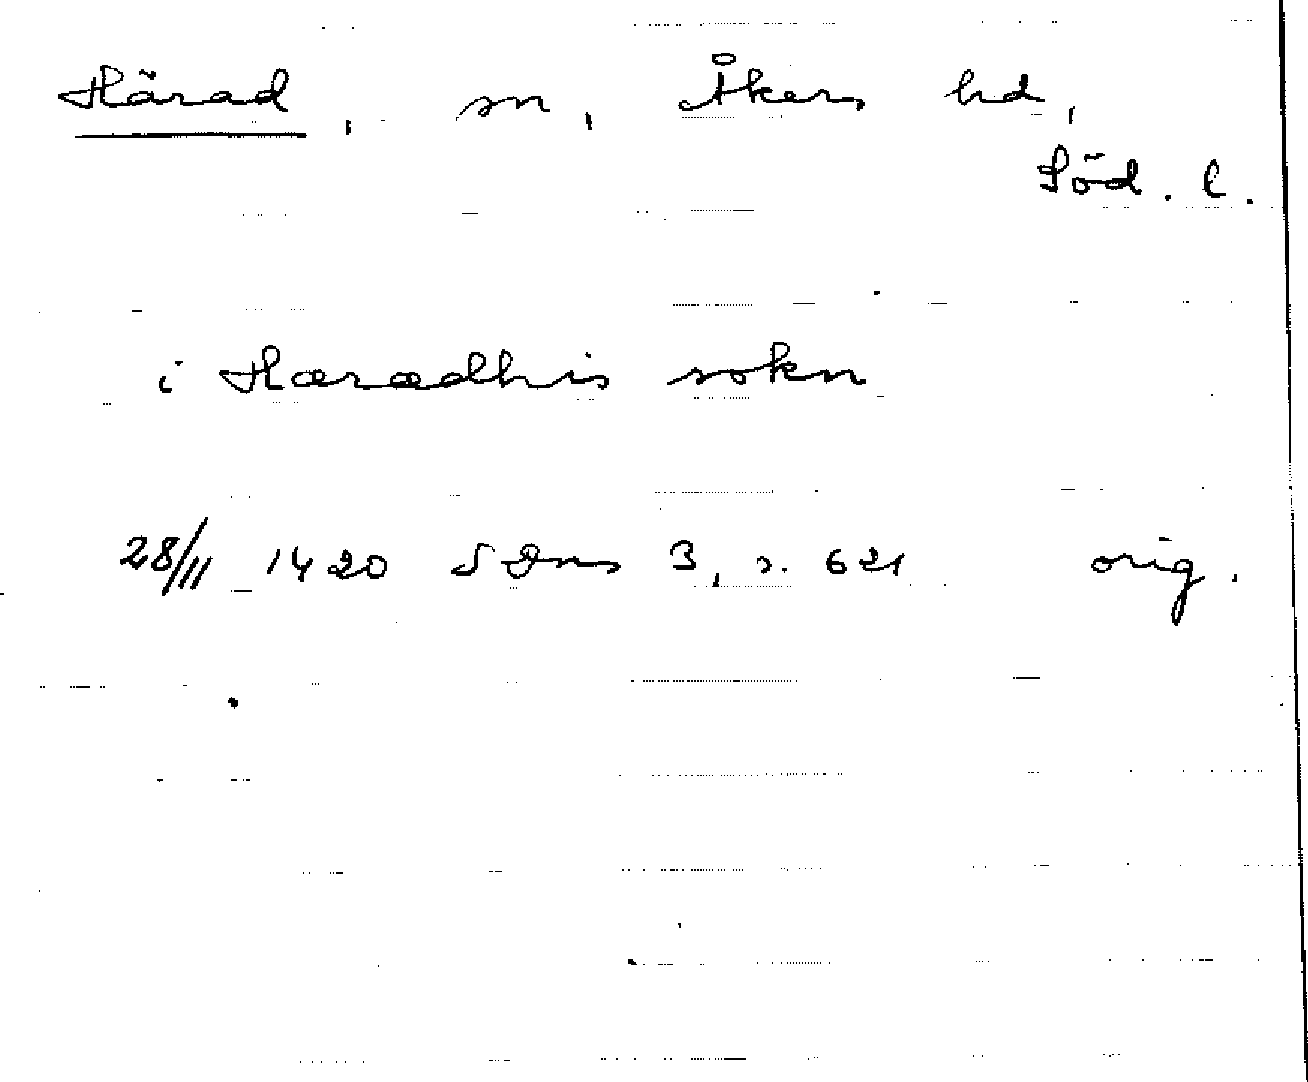 Härad, sn, Åkers hd,
Söd. l.
i Haradhis sokn
28/11 1420 SDns 3, s. 621 orig.